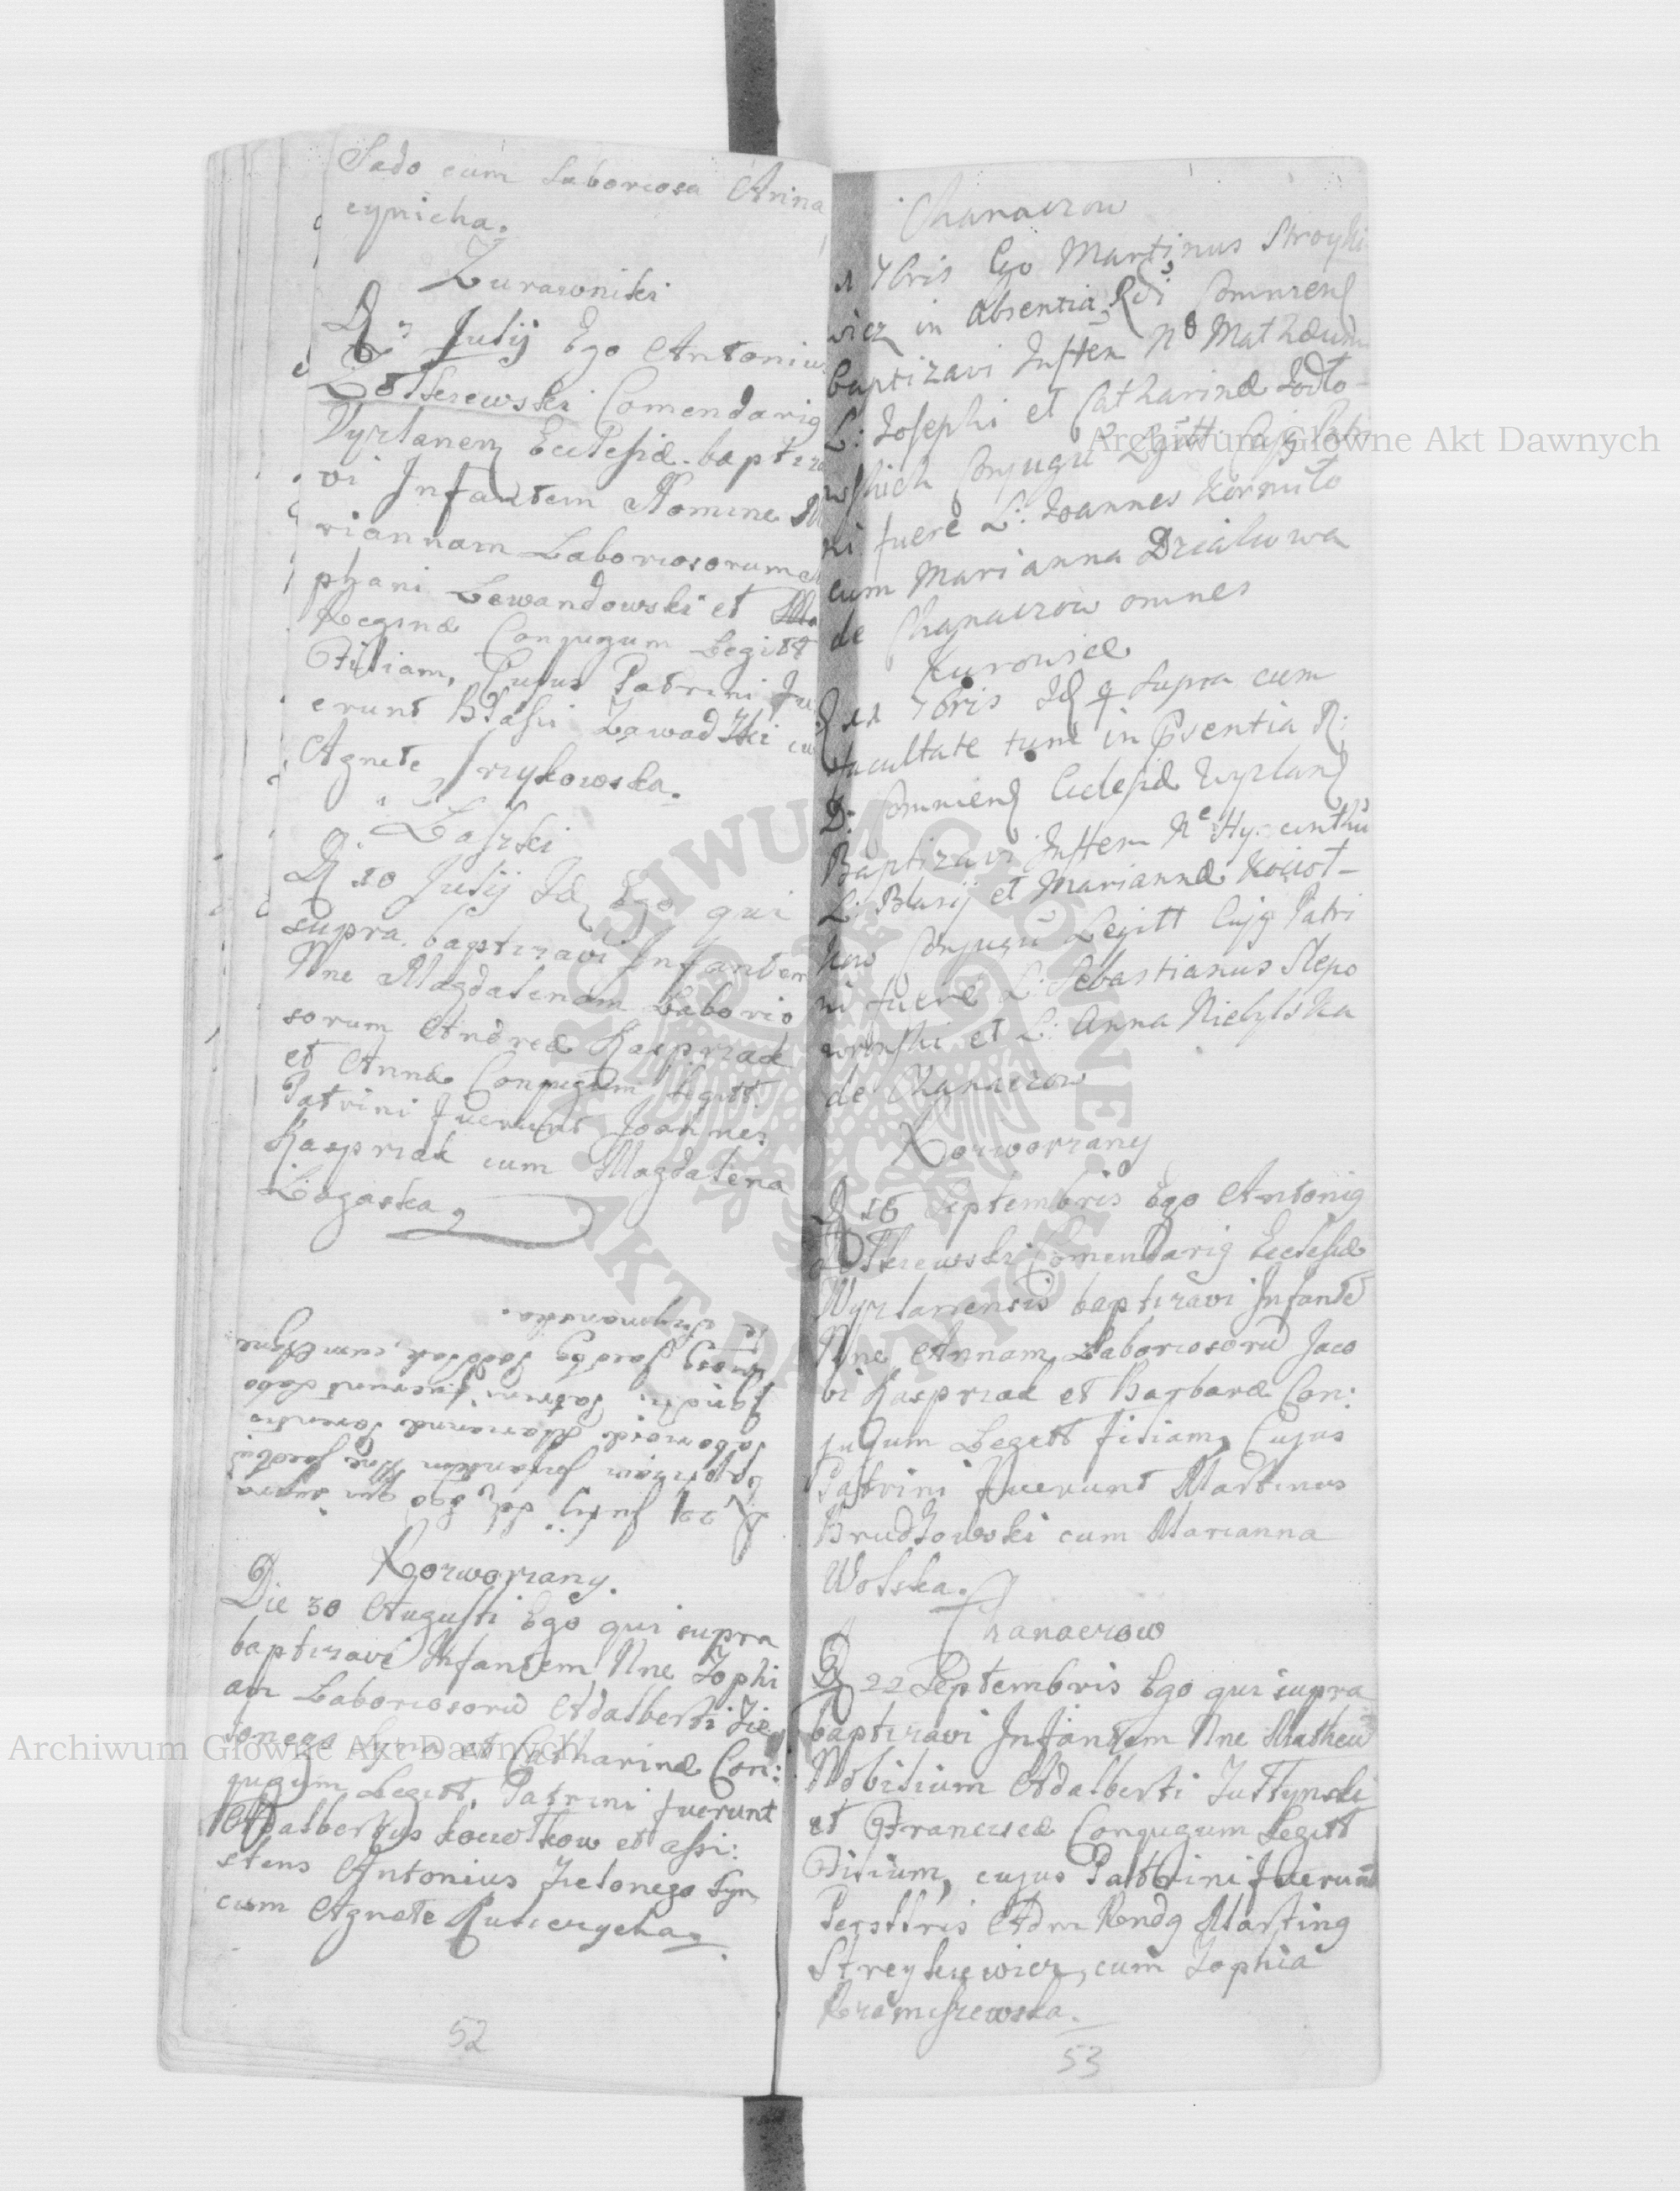 Sado cum Laboriosa Anna
cynicha.
Zurawniki
D 3 Julij Ego Antonius
Lotkiewski Comendarig
Vyrlanen Ecclesiæ baptiza
vi Infantem Nomine Ma
riannam Laboriosorum
phani Lewandowski et
Reginæ Conjugum Legitt
Filiam, Cujus Patrini fu
erunt Blasii Zawadzki cu
Agnete Srzykowska.
Laszki
D 10 Julij Id Ego qui
supra baptizavi Infantem
Nne Magdalenam Laborio
sorum Andreæ Kaspriak
et Annæ Conjugum Legitt.
Patrini fuerunt Joannes
Kaspriak cum Magdalena
Lagaska
D 22 Julij Id Ego qui supra
baptizavi Infantem Nne
Laboriosæ Mariannæ
Patrini fuerunt Labo
cum Agne
te
Rozworzany.
Die 30 Augusti Ego qui supra
baptizavi Infantem Nne Zophi
am Laboriosorū Adalberti Zie
lonego Syna et Catharinæ Con:
jugum Legitt, Patrini fuerunt
Adalbertus Kociotkow et assi:
stens Antonius Zielonego Syn
cum Agnete Kucierzycha
52
Chanaczow
1 7bris Ego Martinus Stroyki
wicz in absentia Rdi Commen
baptizavi Inften No Mathæum
L: Josephi et Catharinæ Jodło-
wskich Conjugū Legitt Cujg Patri
ni fuere L: Joannes Kornuto
cum Marianna Dzialuwa
de Chanaczow omnes
Kurowice
D 11 7bris Id q supra cum
facultate tunc in Psentia R:
D: Commen Ecclesiæ Wyrlan
Baptizavi Inftem Ne Hyacinthū
L: Blasij et Mariannæ Kociot-
kow Conjugū Legitt Cujg Patri
ni fuere L: Sebastianus Slepo
wronski et L: Anna Nielylska
de Chanaczow
Rozworzany
D 16 Septembris Ego Antonig
Lotkiewski Comendarig Ecclesiæ
Wyrlanensis baptizavi Infantē
Nne Annam Laboriosorū Jaco
bi Kaspriak et Barbaræ Con:
jugum Legitt filiam, Cujus
Patrini fuerunt Martinus
Brudzowski cum Marianna
Wolska.
Chanaczow
D 22 Septembris Ego qui supra
baptizavi Infantem Nne Matheū
Nobilium Adalberti Juttynski
et Franciscæ Conjugum Legitt
Filium, cujus Patrini fuerunt
Perillris Adm Rendg Marting
Streykiewicz, cum Zophia
Kramiszewska.
53
Archiwum Główne Akt Dawnych
Archiwum Główne Akt Dawnych
ARCHIWUM GŁÓWNE
AKT DAWNYCH